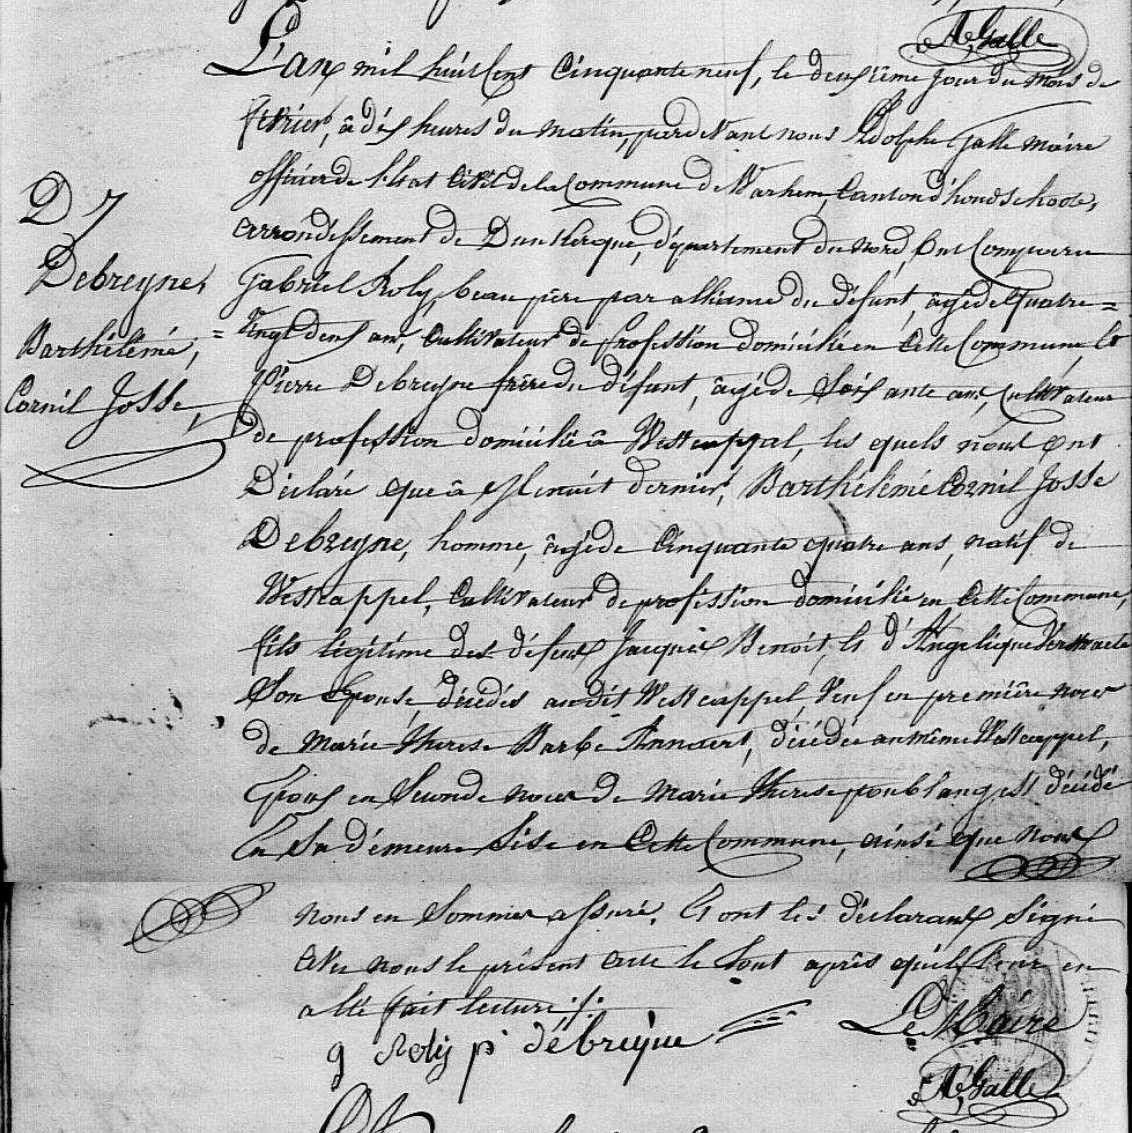 A. Galle
L'an mil huit Cent Cinquante neuf, le deuxième jour du Mois de
fevrier, â dix heures du matin, pardevant nous Adolphe Galle maire
officier de l'Etat Civil de la Commune de Warhem, Canton d'hondschoote,
arrondissement de Dunkerque, département du Nord, ont Comparu
Gabriel Roly, beau père par alliance du défunt, âgé de Quatre=
D 7
Debreyne,
Barthélémé,
Cornil Josse,
=Vingt deux ans, Cultivateur de profession domicilié en Cette Commune, Et
Pierre Debreyne frère du défunt, âgé de Soixante ans, Cultivateur
de profession domicilié â Westcappel, les quels nous ont
Déclaré que â Minuit dernier, Barthélémé Cornil Josse
Debreyne, homme, âgé de Cinquante quatre ans, natif de
Westcappel, Cultivateur de profession domicilié en Cette Commune,
fils légitime des défunts Jacques Benoit, Et d'Angelique
Son Epouse, décédés audit Westcappel, Veuf en première noces
de Marie Therese Barbe Annaert, décédée au même Westcappel,
Epoux en Seconde noces de Marie Therese est décédé
En Sa démeure Sise en Cette Commune, ainsi que nous
nous en Sommes assuré. Et ont les déclarants Signé
avec nous le présent acte le tout après qu'il leur en
a été fait lecture ./.
g Roly p débreyne
Le Maire
A. Galle